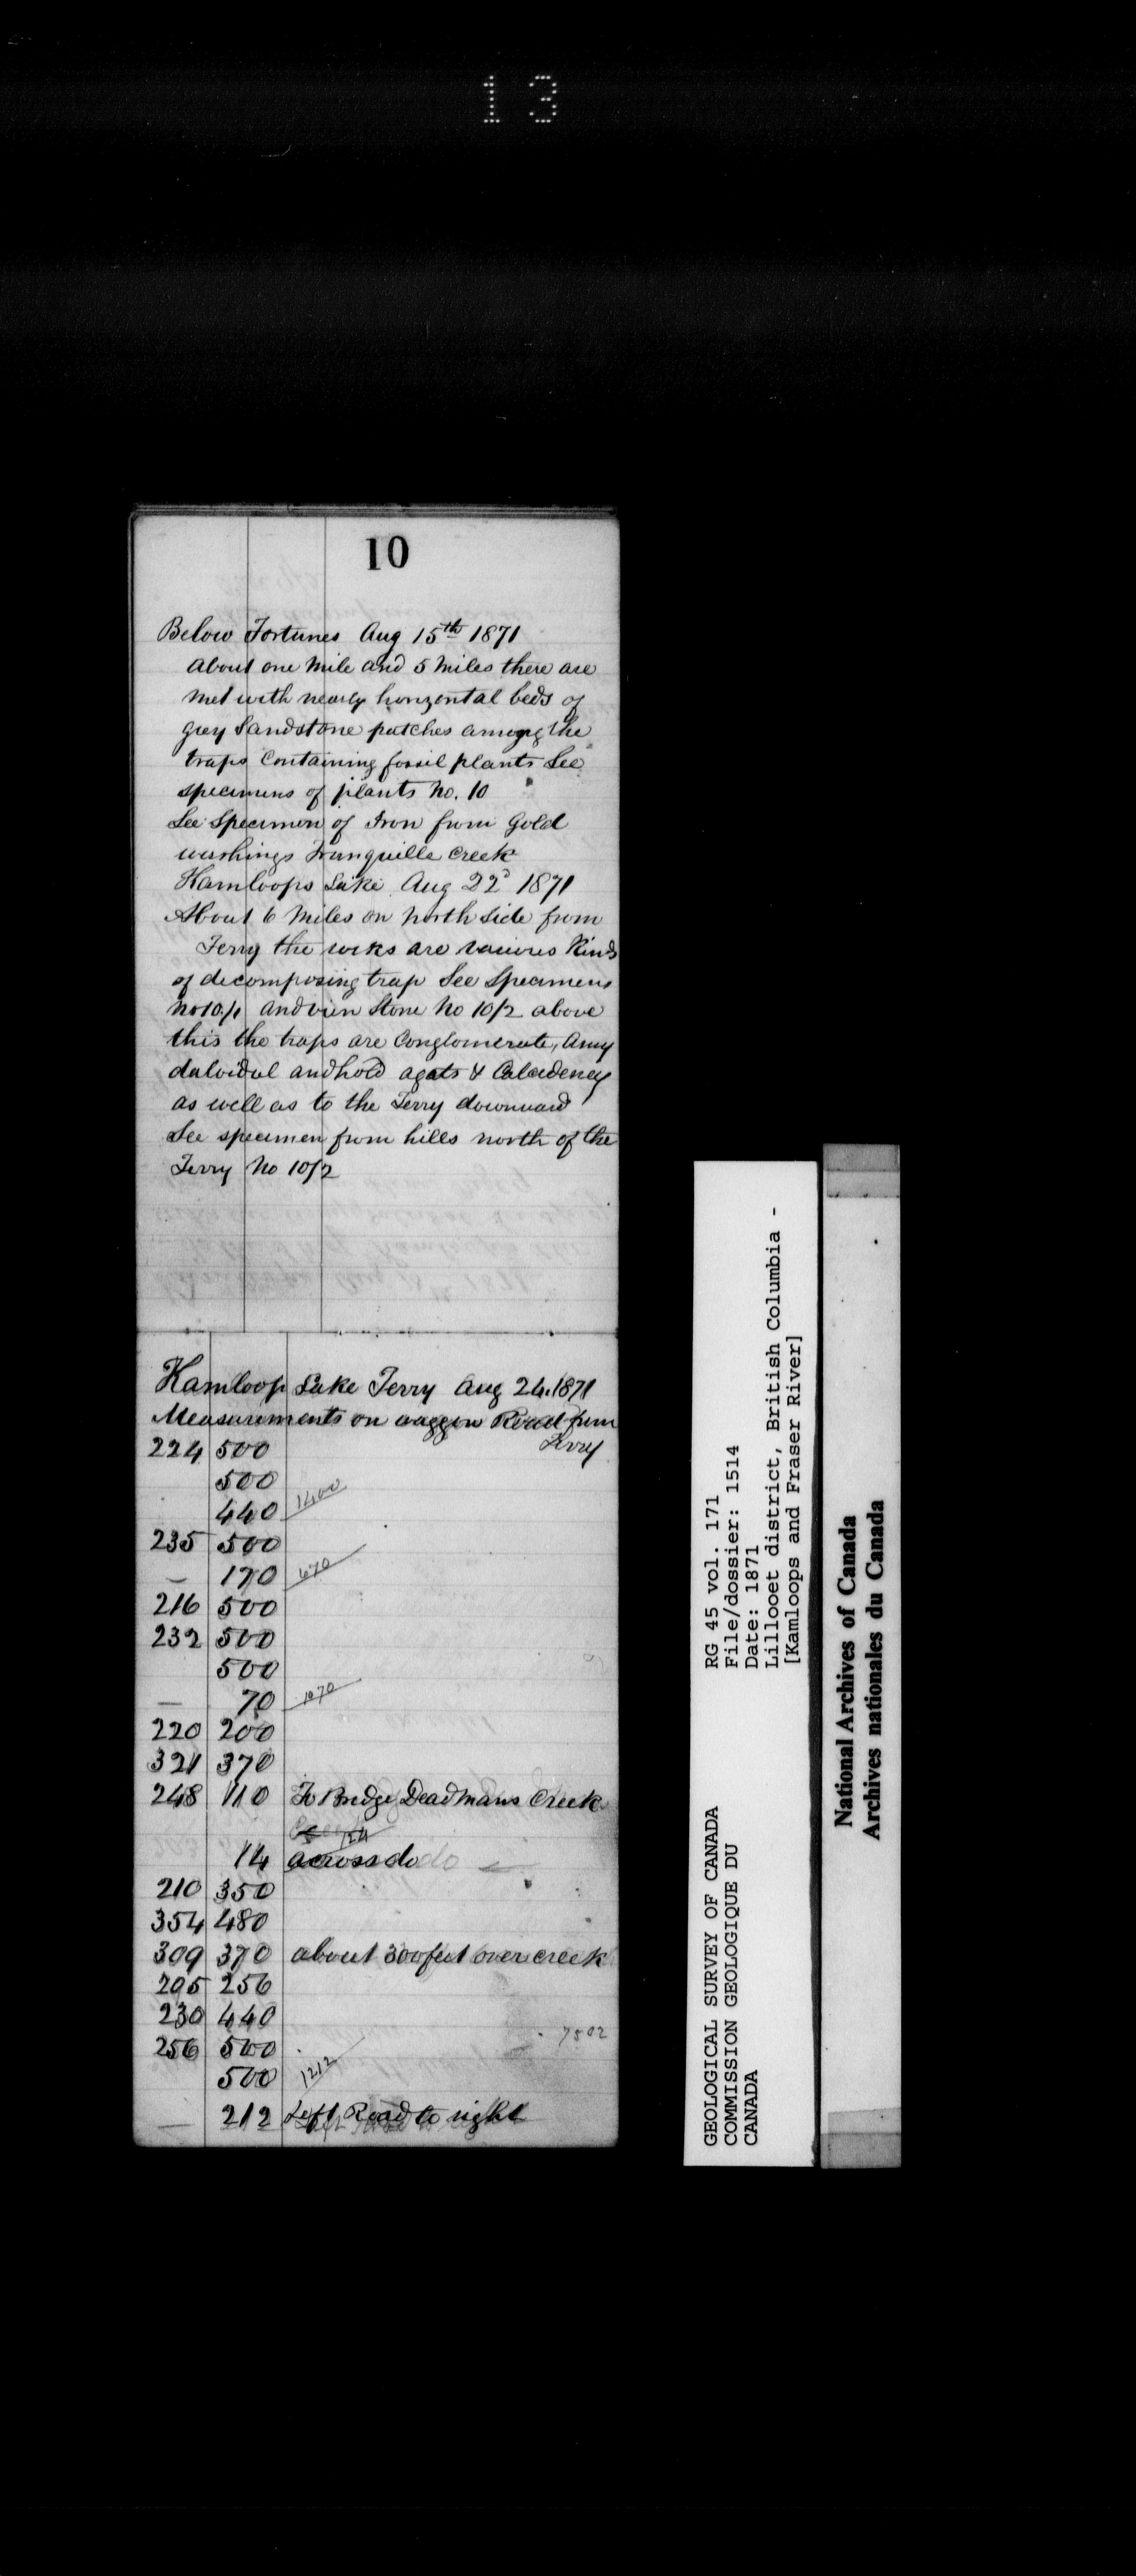 13
10
Below Fortunes Aug 15th 1871
About one mile and 5 miles there are
met with nearly horizontal beds of
grey Sandstone patches among the
traps Containing fossil plants See
specimens of plants No. 10
See Specimen of Iron from Gold
washings Tranquille Creek
Kamloops Lake Aug 22d 1871
About 6 Miles on North Side from
Ferry the rocks are various Kinds
of decomposing trap See Specimens
No 10/1 and vien Stone No 10/2 above
this the traps are Conglomerate, Amy
daloidal and hold agats & Calcedeney
as well as to the Ferry downward
See specimen from hills north of the
Ferry No 10/2
Kamloop Lake Ferry Aug 24. 1871
Measurements on waggon Road from
Ferry
224 500
500
440 1400
235 500
— 170 670
216 500
232 500
500
— 70 1070
220 200
321 370
248 110 To Bridge Deadmans Creek
124
14 across do do
210 350
354 480
309 370 about 300 feet over creek
205 256
230 440
7502
256 500
500 1212
— 212 Left Road to right
GEOLOGICAL SURVEY OF CANADA
COMMISSION GEOLOGIQUE DU
CANADA
RG 45 vol. 171
File/dossier: 1514
Date: 1871
Lillooet district, British Columbia -
[Kamloops and Fraser River]
National Archives of Canada
Archives nationales du Canada